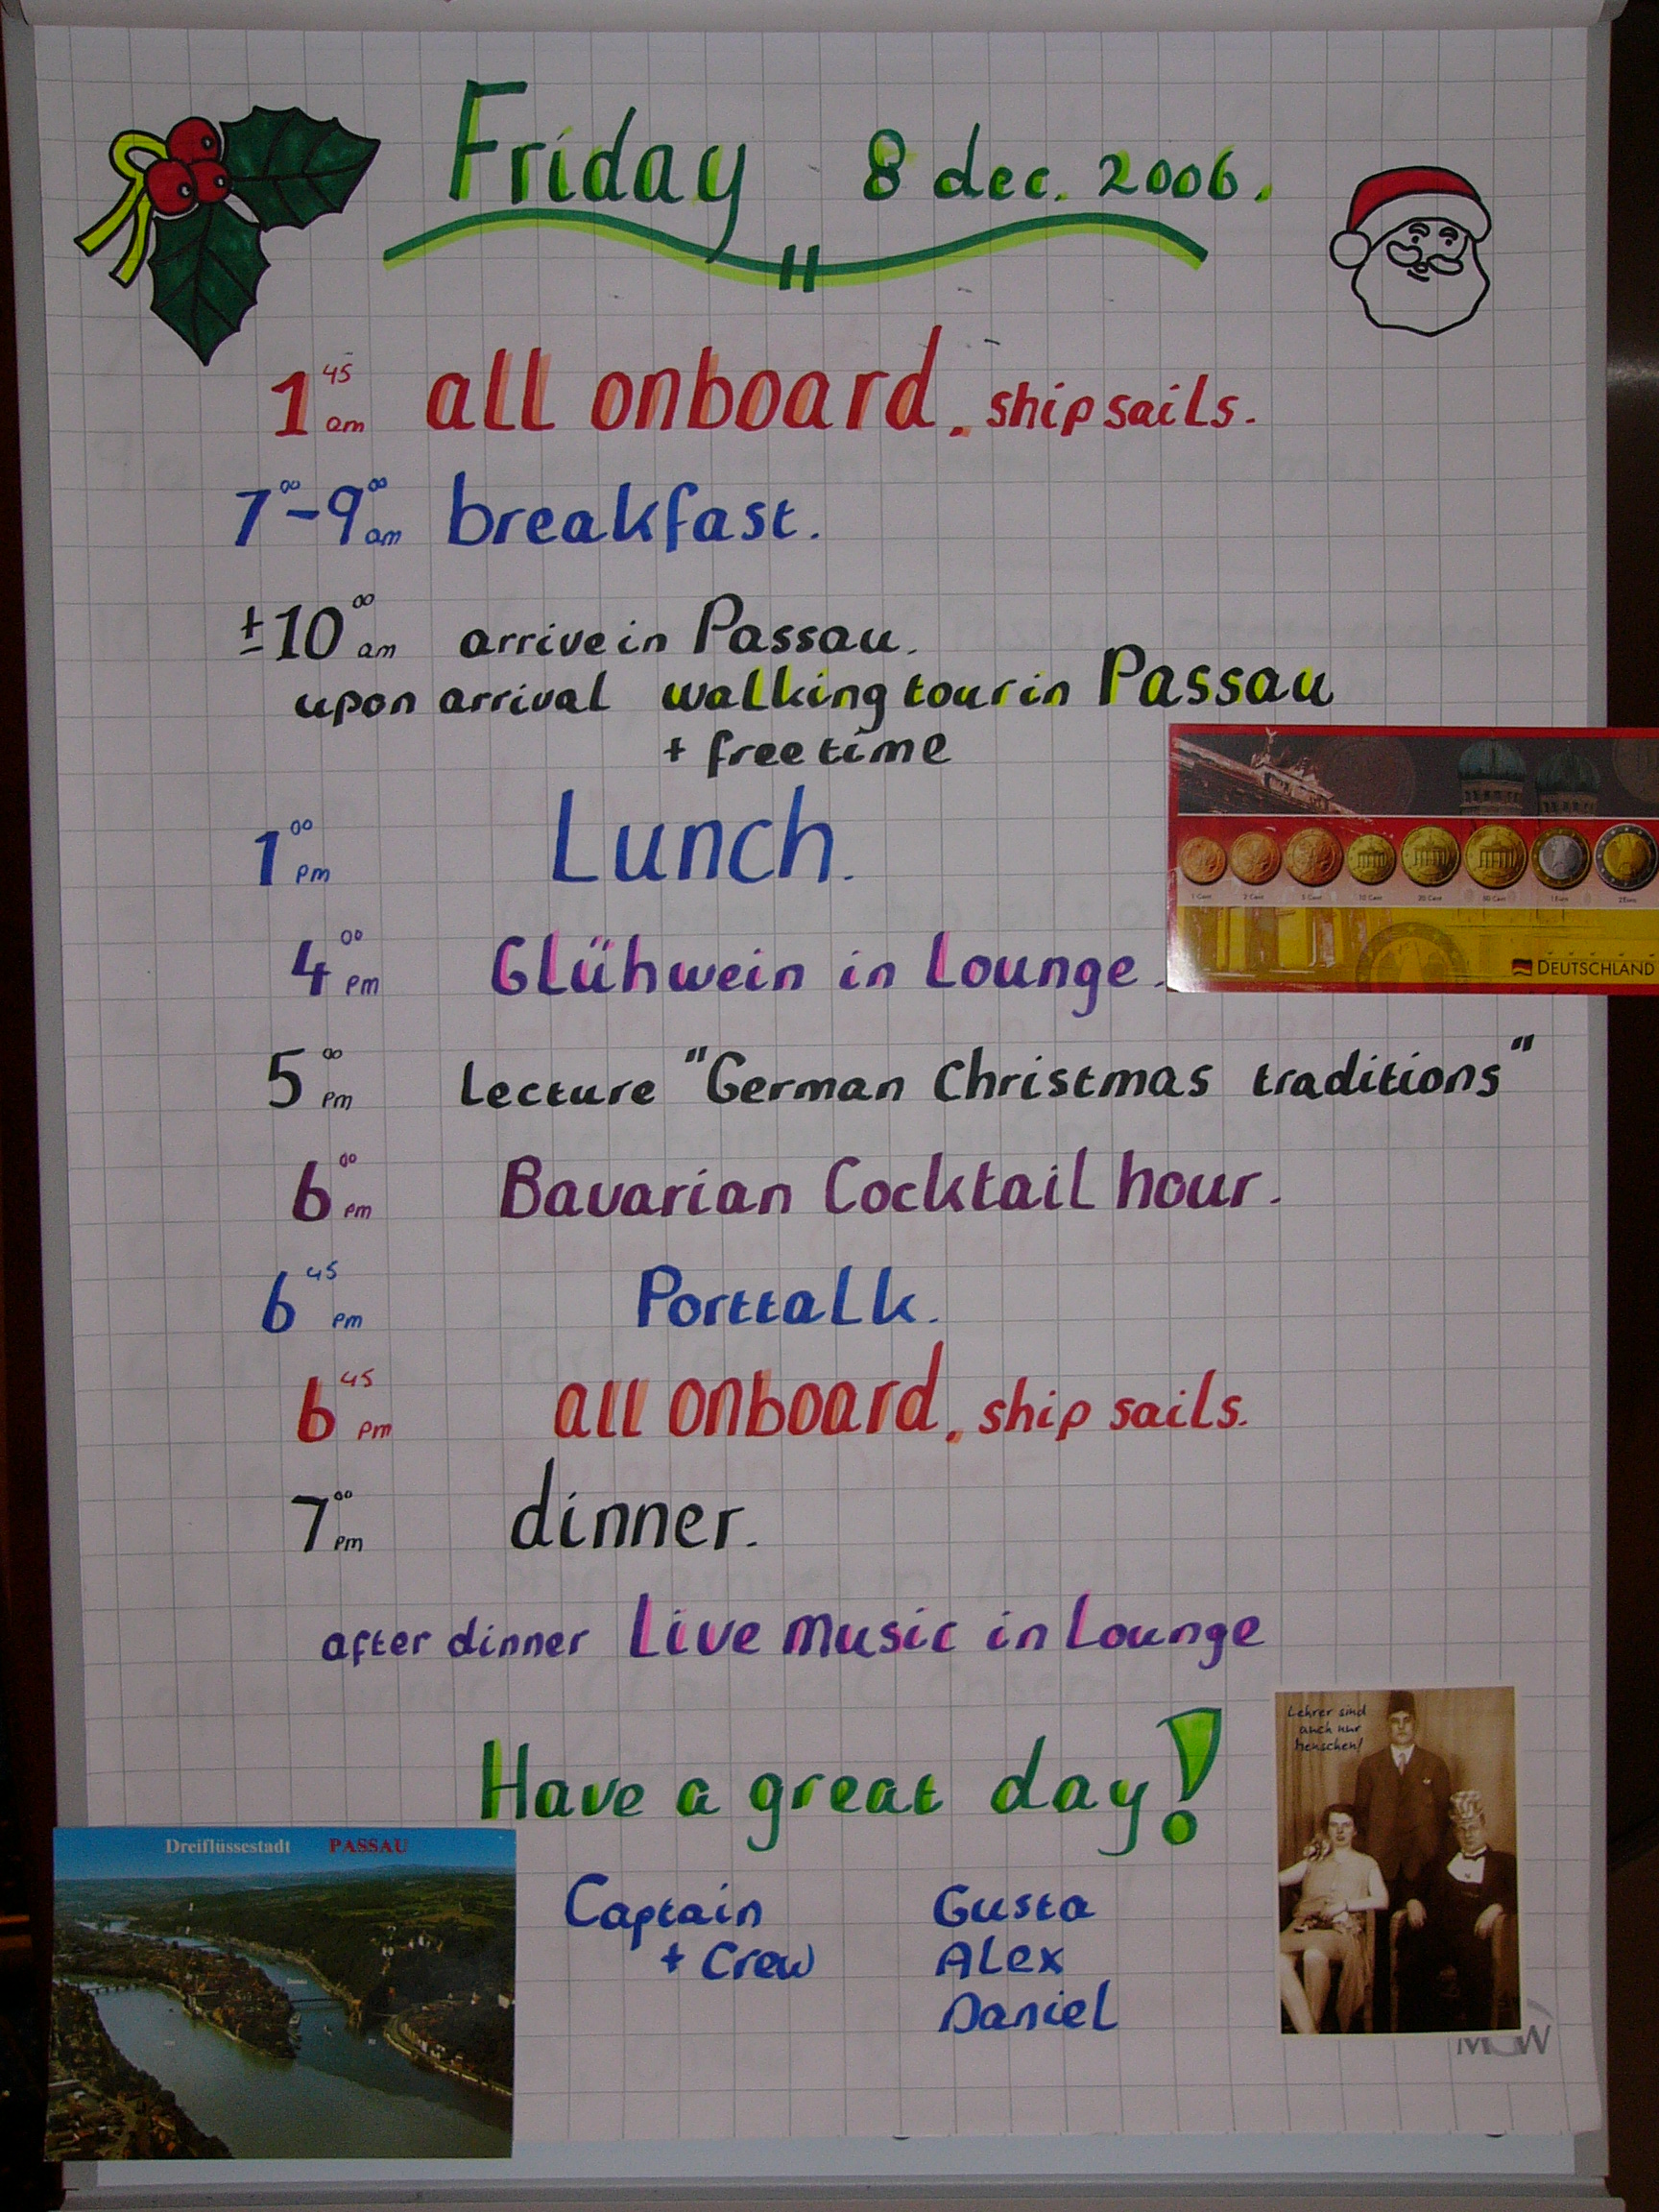 Friday 8 dec. 2006.
1 45 am all onboard. ship sails.
7 00 - 9 00 am breakfast.
± 10 00 am arrive in Passau.
upon arrival walking tour in Passau
+ free time
1 00 pm Lunch.
1 Cent 2 Cent 5 Cent 10 Cent 20 Cent 50 Cent 1 Euro 2 Euro
DEUTSCHLAND
4 00 pm Glühwein in Lounge.
5 00 pm Lecture "German Christmas traditions"
6 00 pm Bavarian Cocktail hour.
6 45 pm Porttalk.
6 45 pm all onboard. ship sails.
7 00 pm dinner.
after dinner Live music in Lounge
Have a great day!
Lehrer sind
auch nur
Menschen!
Dreiflüssestadt PASSAU
Captain Gusta
+ Crew Alex
Daniel